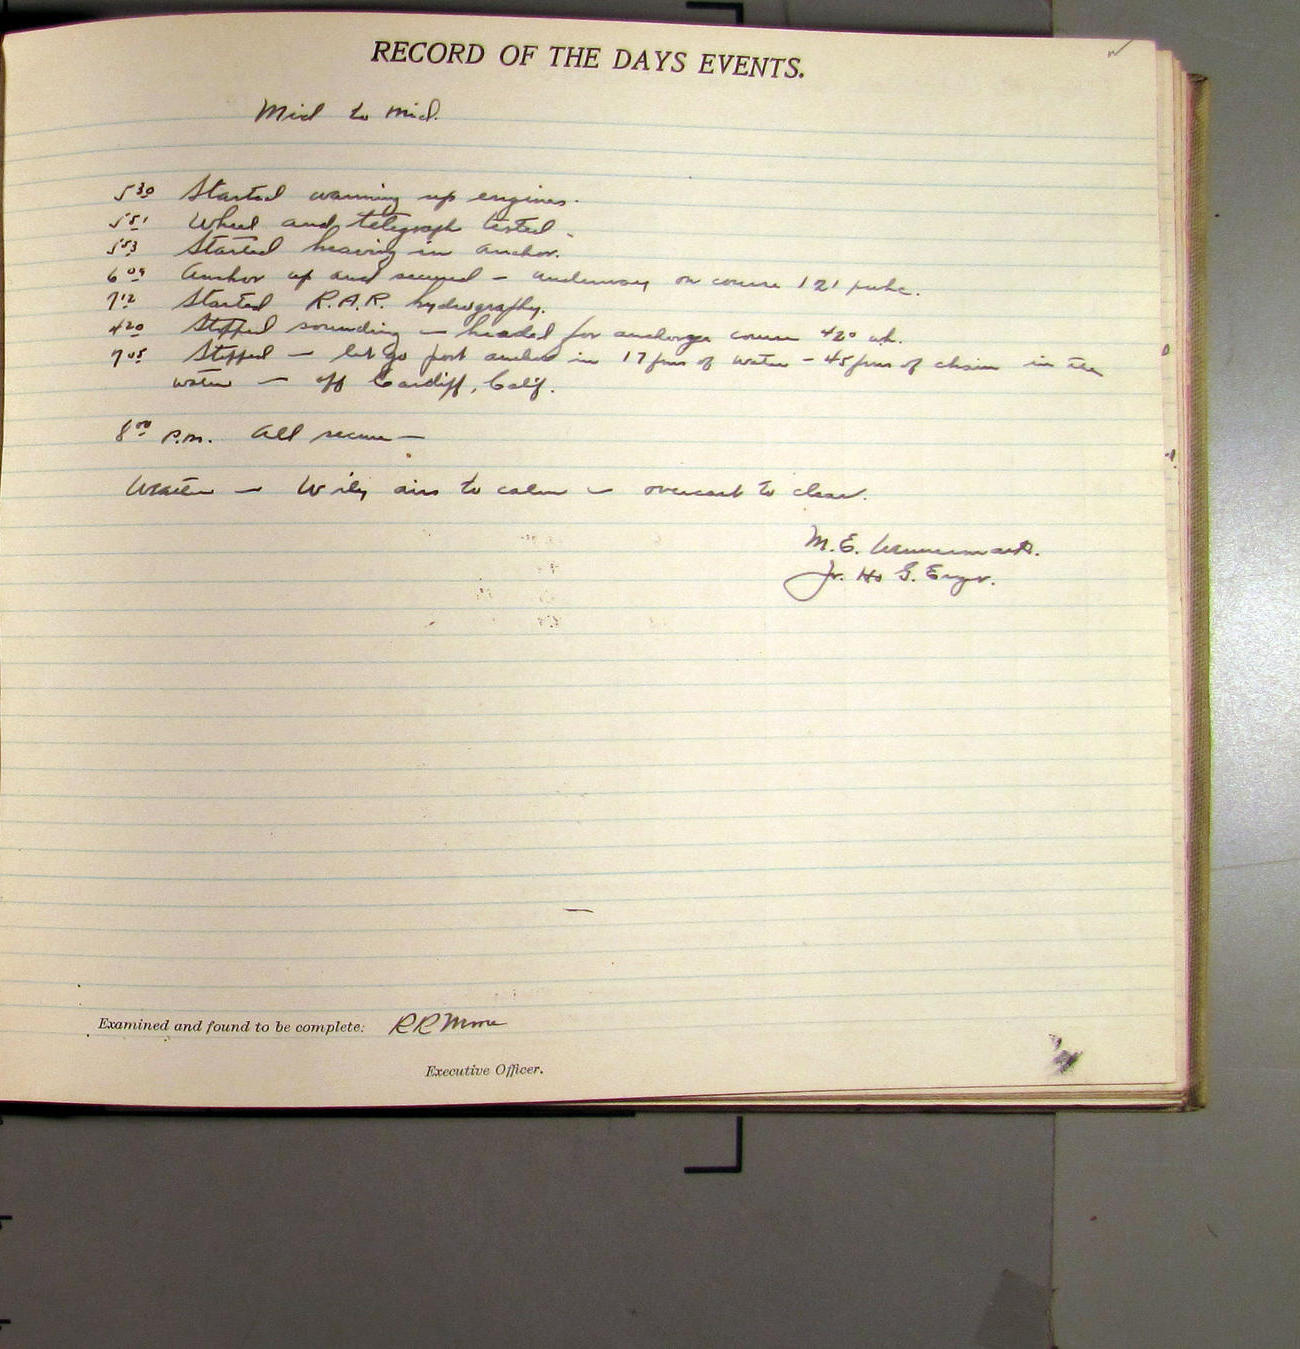 RECORD OF THE DAYS EVENTS.
Mid to mid.
5 30 Started warming up engines.
5 51 Wheel and telegraph tested.
5 53 Started heaving in anchor.
6 09 Anchor up and secured — underway on course 121 pstc.
7 12 Started R.A.R. hydrography.
4 20 Stopped sounding — headed for anchorage course 42°
7 05 Stopped — let go port anchor in 17 fms of water — 45 fms of chain in the
water — off Cardiff, Calif.
8 00 P.M. All secure —
Weather — W'ly airs to calm — overcast to clear.
M. E.
Jr. H & G. Engr.
Examined and found to be complete: R R Moore
Executive Officer.